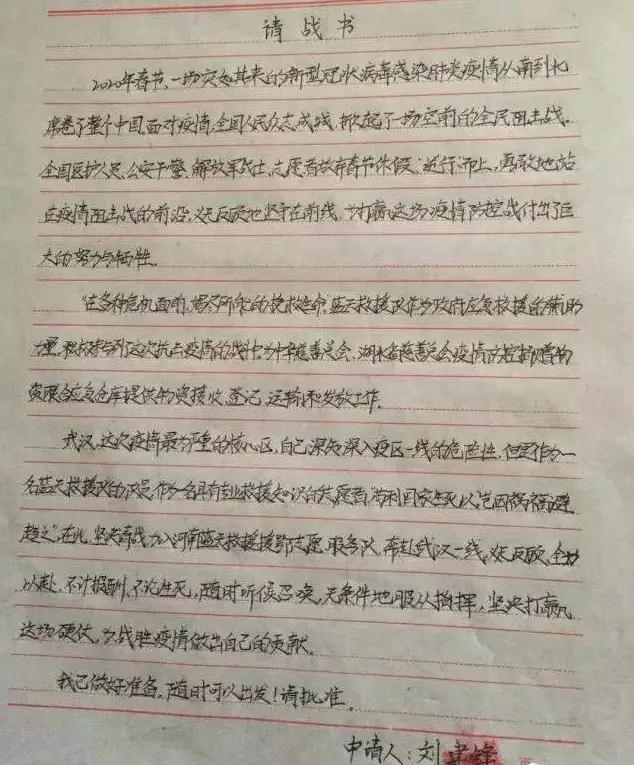 请战书
2020年春节,一场突如其来的新型冠状病毒感染肺炎疫情从南到北
席卷了整个中国,面对疫情,全国人民众志成城,掀起了一场空前的全民阻击战。
全国医护人员、公安干警、解放军战士、志愿者放弃春节休假,“逆行”而上,勇敢地站
在疫情阻击战的前沿,义无反顾地坚守在前线,为打赢这场疫情防控战付出了巨
大的努力与牺牲。
“在各种危机面前,竭尽所能的挽救生命”,蓝天救援队作为政府应急救援的辅助
力量,积极参与到这次抗击疫情的战斗,为中华慈善总会、湖北省慈善总会疫情防控捐赠物
资联合应急仓库提供物资接收、登记、运输和发放工作。
武汉,这次疫情最为严重的核心区,自己深知深入疫区一线的危险性,但是作为一
名蓝天救援队的队员,作为一名具有专业救援知识的志愿者,“苟利国家生死以,岂因祸福避
趋之”,在此,坚决请战加入河南蓝天救援援鄂志愿服务队,奔赴武汉一线,义无反顾,全力
以赴,不计报酬、不论生死,随时听候召唤,无条件地服从指挥,坚决打赢
这场硬仗,为战胜疫情做出自己的贡献。
我已做好准备,随时可以出发!请批准。
申请人:刘建锋